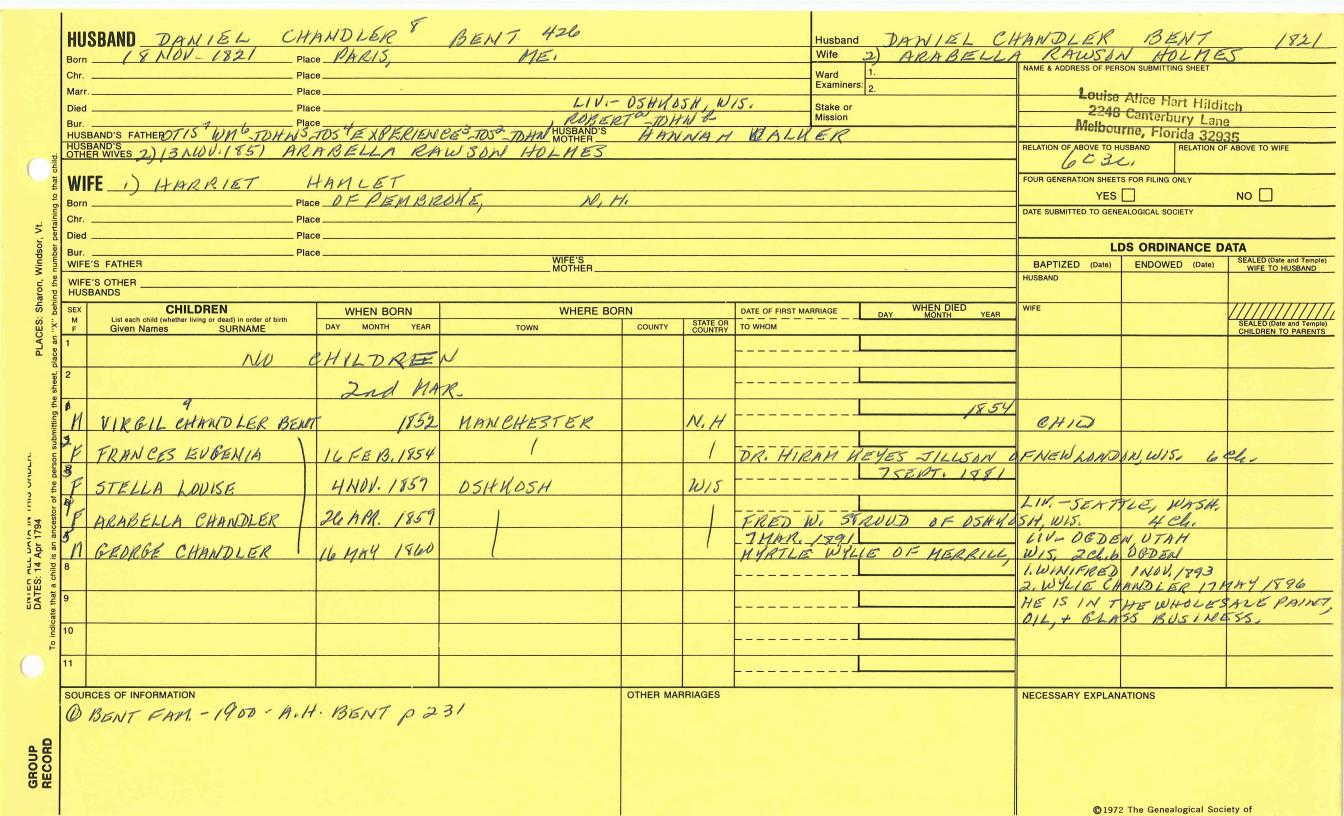 HUSBAND DANIEL CHANDLER 8 BENT 426
Born 18 NOV - 1821 Place PARIS, ME.
Chr. Place
Marr. Place
Died Place LIV. - OSHKOSH, WIS.
Bur. Place ROBERT JOHN
HUSBAND'S FATHER OTIS 7 WM 6 JOHN 5 JOS 4 EXPERIENCE 3 JOS 2 JOHN HUSBAND'S MOTHER HANNAH WALKER
HUSBAND'S OTHER WIVES 2) 13 NOV. 1851 ARABELLA RAWSON HOLMES
WIFE 1) HARRIET HAMLET
Born Place OF PEMBROKE, N.H.
Chr. Place
Died Place
Bur. Place
WIFE'S FATHER WIFE'S MOTHER
WIFE'S OTHER HUSBANDS
Husband DANIEL CHANDLER BENT 1821
Wife 2) ARABELLA RAWSON HOLMES
Ward Examiners: 1. 2.
Stake or Mission
NAME & ADDRESS OF PERSON SUBMITTING SHEET
Louise Alice Hart Hilditch
2248 Canterbury Lane
Melbourne, Florida 32935
RELATION OF ABOVE TO HUSBAND RELATION OF ABOVE TO WIFE
6C 3R.
FOUR GENERATION SHEETS FOR FILING ONLY
YES NO
DATE SUBMITTED TO GENEALOGICAL SOCIETY
LDS ORDINANCE DATA
BAPTIZED (Date) ENDOWED (Date) SEALED (Date and Temple) WIFE TO HUSBAND
HUSBAND
WIFE
SEALED (Date and Temple) CHILDREN TO PARENTS
SEX M F
CHILDREN
List each child (whether living or dead) in order of birth
Given Names SURNAME
WHEN BORN
DAY MONTH YEAR
WHERE BORN
TOWN COUNTY STATE OR COUNTRY
DATE OF FIRST MARRIAGE
TO WHOM
WHEN DIED
DAY MONTH YEAR
1 NO CHILDREN
2 2nd MAR.
1854
1 M VIRGIL CHANDLER 9 BENT 1852 MANCHESTER N.H CHILD
2 F FRANCES EUGENIA 16 FEB. 1854 DR. HIRAM KEYES JILLSON OF NEW LONDON, WIS. 6 Ch.
7 SEPT. 1881
3 F STELLA LOUISE 4 NOV. 1857 OSHKOSH WIS
LIV. - SEATTLE, WASH.
4 F ARABELLA CHANDLER 26 APR. 1859 FRED W. STROUD OF OSHKOSH, WIS. 4 Ch.
7 MAR. 1891 LIV- OGDEN, UTAH
5 M GEORGE CHANDLER 16 MAY 1860 MYRTLE WYLIE OF MERRILL, WIS. 2 Ch. b OGDEN
8 1. WINIFRED 1 NOV. 1893
2. WYLIE CHANDLER 17 MAY 1896
9 HE IS IN THE WHOLESALE PAINT,
OIL, + GLASS BUSINESS.
10
11
SOURCES OF INFORMATION OTHER MARRIAGES NECESSARY EXPLANATIONS
① BENT FAM. - 1900 - A.H. BENT p 231
©1972 The Genealogical Society of
PLACES: Sharon, Windsor, Vt.
DATES: 14 Apr 1794
To indicate that a child is an ancestor of the person submitting the sheet, place an "X" behind the number pertaining to that child.
GROUP RECORD